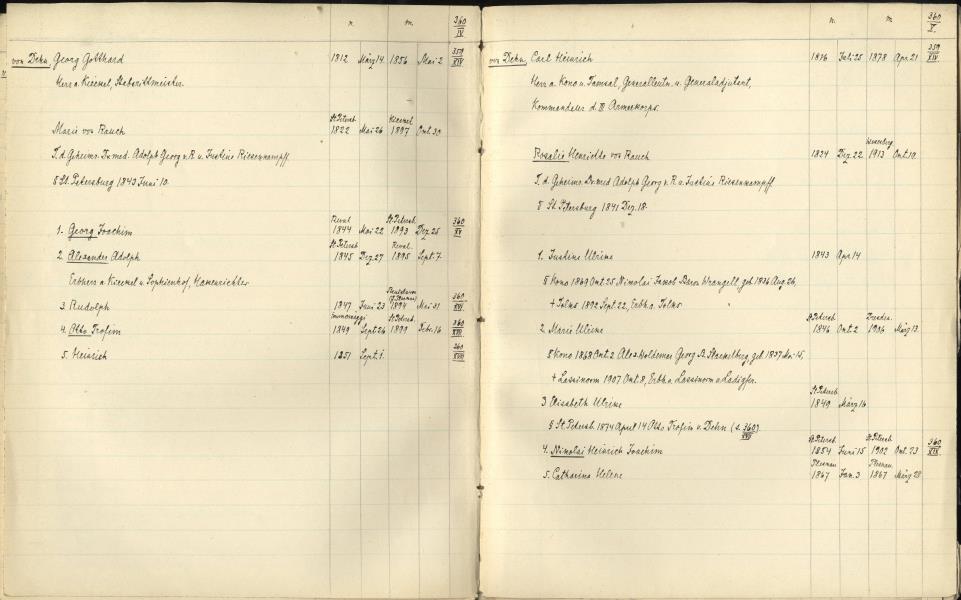 n. m. 360 IV
von Dehn, Georg Gotthard 1812 März 14. 1856 Mai 2 359 XIV
Herr a. Kieckel, Staberittmeister.
St. Petersb. Kieckel
Marie von Rauch 1822 Mai 26 1897 Okt. 30
T. d. Geheimr. Dr. med. Adolph Georg v. R. u. Justine Riesenkampff.
St. Petersburg 1843 Juni 10.
Reval St. Petersb. 360
1. Georg Joachim 1844 Mai 22 1893 Dez. 25 XV
St. Petersb. Reval
2. Alexander Adolph 1845 Dez. 27 1895 Sept. 7.
Erbherr a. Kieckel u. Sophienhof, Hakenrichter
3. Rudolph 1847 Juni 23 1894 Mai 31 360 XVI
St. Petersb.
4. Otto Trofim 1849 Sept. 26 1899 Febr. 16 360 XVII
5. Heinrich 1851 Sept. 1. 360 XVIII
n. m. 360 V.
von Dehn, Carl Heinrich 1816 Juli 25 1878 Apr. 21 359 XIV
Herr a. Kono u. Tamsal, Generalleutn. u. Generaladjutant,
Kommandeur d. III Armeekorps.
Wesenberg
Rosalie Henriette von Rauch 1824 Dez. 22 1913 Okt. 10.
T. d. Geheimr. Dr. med Adolph Georg v. R. u. Justine Riesenkampff
St. Petersburg 1841 Dez. 18.
1. Justine Ulrike 1843 Apr. 14
Kono 1869 Okt. 25 Nikolai Jakob Baron Wrangell, geb. 1836 Aug. 26,
† Tolks 1892 Sept. 22, Erbh. a. Tolks.
St. Petersb. Dresden.
2. Marie Ulrike 1846 Okt. 2 1906 März 13.
Kono 1868 Okt. 2 Alex. Woldemar Georg B. Stackelberg, geb. 1837 Mai 15,
† Lassinorm 1907 Okt. 8, Erbh. a. Lassinorm u. Ladigfer.
St. Petersb.
3 Elisabeth Ulrike 1849 März 16
St. Petersb. 1874 April 14 Otto Trofim v. Dehn (s. 360 XVII)
St. Petersb. St. Petersb. 360
4. Nikolai Heinrich Joachim 1854 Juni 15 1902 Okt. 23 XIX
Pernau Pernau
5. Catharina Helene 1867 Jan. 3 1867 März 28